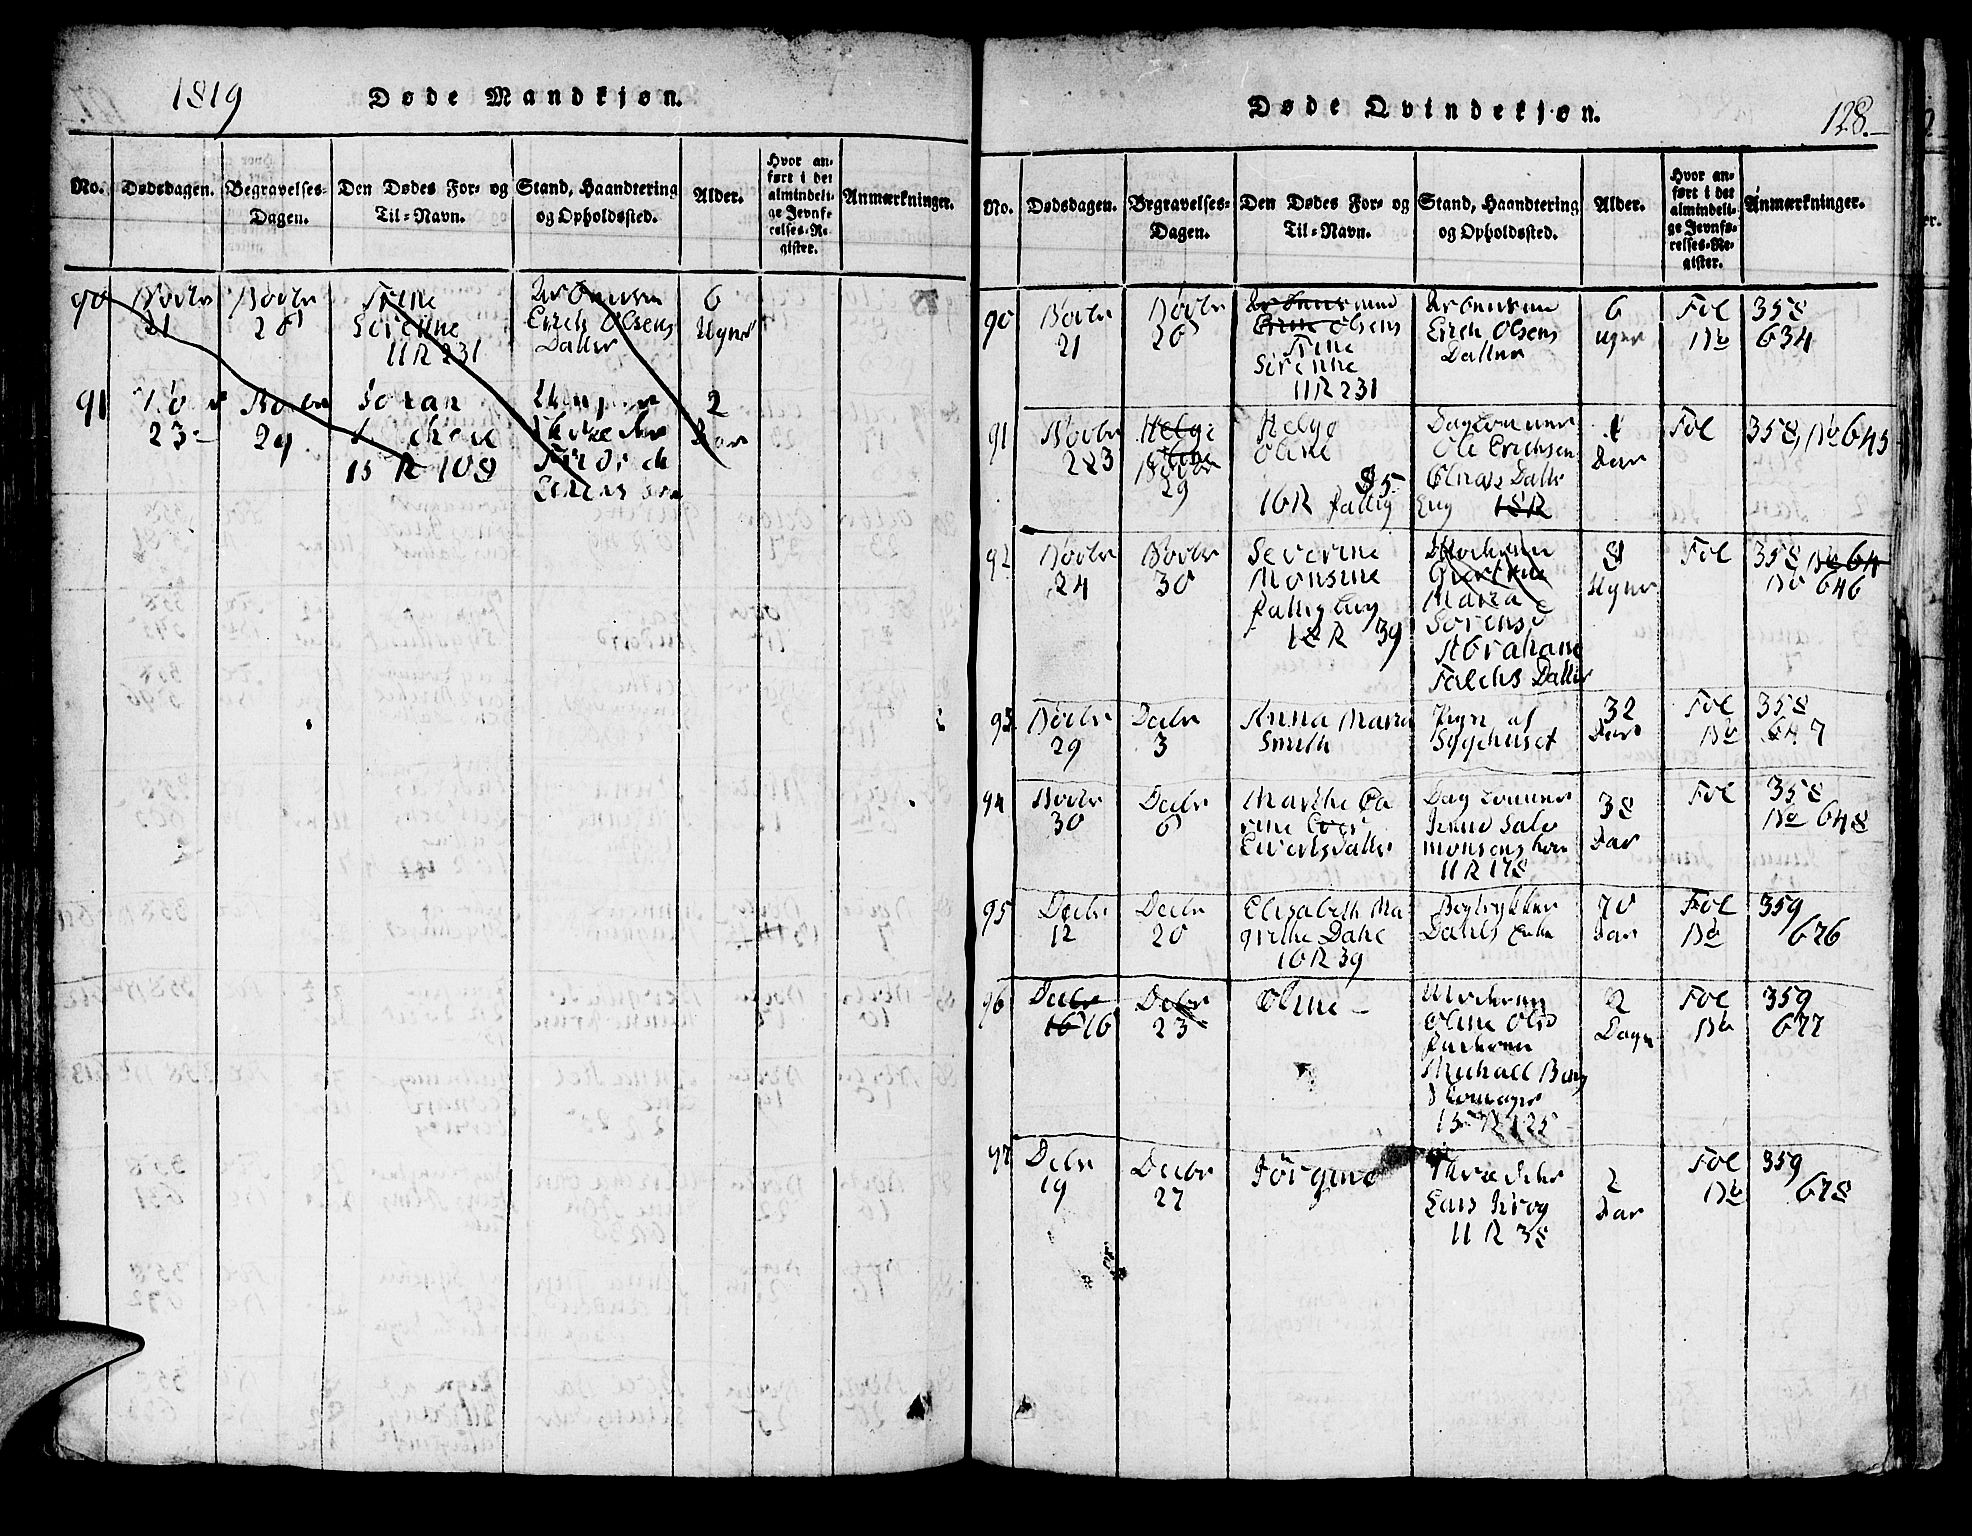 1819
Døde Mandkjøn.
No.
Dødsdagen.
Begravelses-
Dagen.
Den Dødes For- og
Til-Navn.
Stand, Haandtering
og Opholdssted.
Alder.
Hvor an-
ført i det
almindeli-
ge Jevnfø-
relses-Re-
gister.
Anmærkninger.
90
Novbr
21
Novbr
26
Trine
Serenne
11 R 231
Arbeidsm
Erich Olsens
Datter
6
Uger
91
23
Novbr
29
Johan
15 R 108
2
Aar
Døde Qvindekjøn.
128.
No.
Dødsdagen.
Begravelses-
Dagen.
Den Dødes For- og
Til-Navn.
Stand, Haandtering
og Opholdssted.
Alder.
Hvor an-
ført i det
almindeli-
ge Jevnfø-
relses-Re-
gister.
Anmærkninger.
90
Novbr
21
Novbr
26
Olsens
Trine
Serenne
11 R 231
Erich Olsens
Datter
6
uger
Fol
No
358
634
91
Novbr
23
Helge
Novbr
29
Helge
Oline
85
16 R fattig
Ole Erichsen
Datter
Eng 18 R
1
Aar
Fol
358, No 645
92
Novbr
24
Novbr
30
Severine
Monsine
fattig Eng
18 R 39
Maria
Sørens
Abraham
Falchs Datter
Uger
Fol
358 No 64
No 646
93
Novbr
29
Decbr
3
Anna Maria
Smith
Pign af
Sygehuset
32
Aar
Fol
No
358
647
94
Novbr
30
Decbr
6
Marthe Ca
rine
Evertsdatter
Jens Salo
monsens kone
11 R 178
38
Aar
Fol
358
No 648
95
Decbr
12
Decbr
20
Elisabeth Ma
grethe Dahl
10 R 39
Bogtrykker
Dahls Enke
70
Aar
Fol
No
359
676
96
Decbr
16 16
Decbr
23
Oline
Moderen
Oline Ols
faderen
Michael Berg
Skomager
15 R 125
2
Dage
Fol
No
359
677
97
Decbr
19
Decbr
27
Jørgine
Lars Krog
11 R 38
2
Aar
Fol
No
359
678